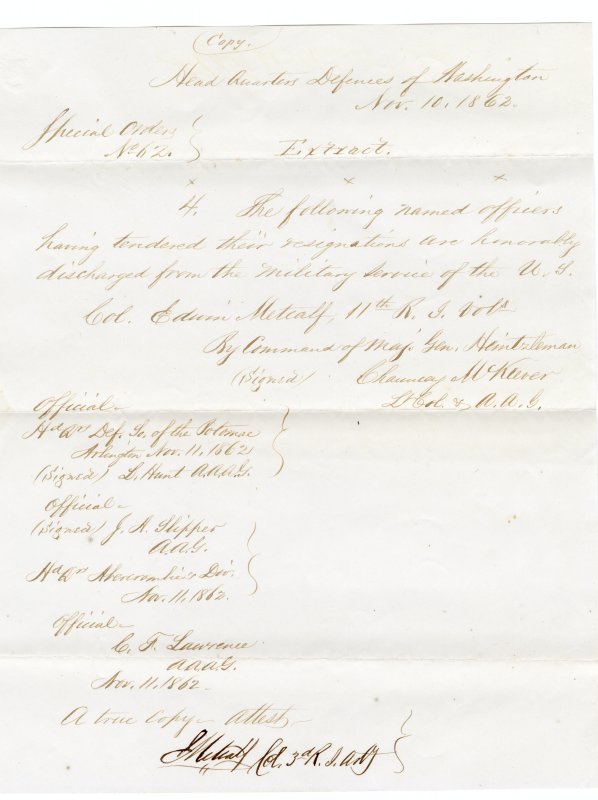 Copy.
Head Quarters Defences of Washington
Nov. 10. 1862.
Special Orders
No 62.
Extract.
x x x
4. The following named officers
having tendered their resignations are honorably
discharged from the military service of the U. S.
Col. Edwin Metcalf, 11th R. I. Vols
By Command of Maj. Gen. Heintzleman
(Signed) Chauncey McKeever
Lt Col. & A. A. G.
Official—
Hd Qrs Def. So. of the Potomac
Arlington Nov. 11, 1862
(Signed) L. Hunt A.A.A.G.
Official—
(Signed) J. A. Slipper
A.A.G.
Hd Qrs Abercrombie's Div.
Nov. 11, 1862.
Official—
C. F. Lawrence
A.A.A.G.
Nov. 11. 1862.
A true Copy— Attest—
Metcalf Col. 3d R. I. Arty